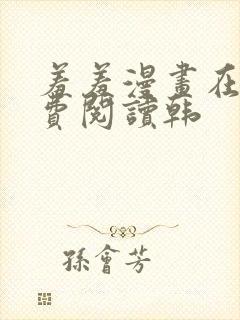 羞羞漫畫在
費閱讀韩
孫會芳